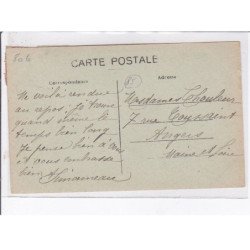 CARTE POSTALE
Correspondance
Adresse
Me voilà rendue
au repos, je trouve
quand même le
temps bien long
Je pense bien à vous
et vous embrasse
bien
Mesdames
7 rue
Angers
Maine et Loire